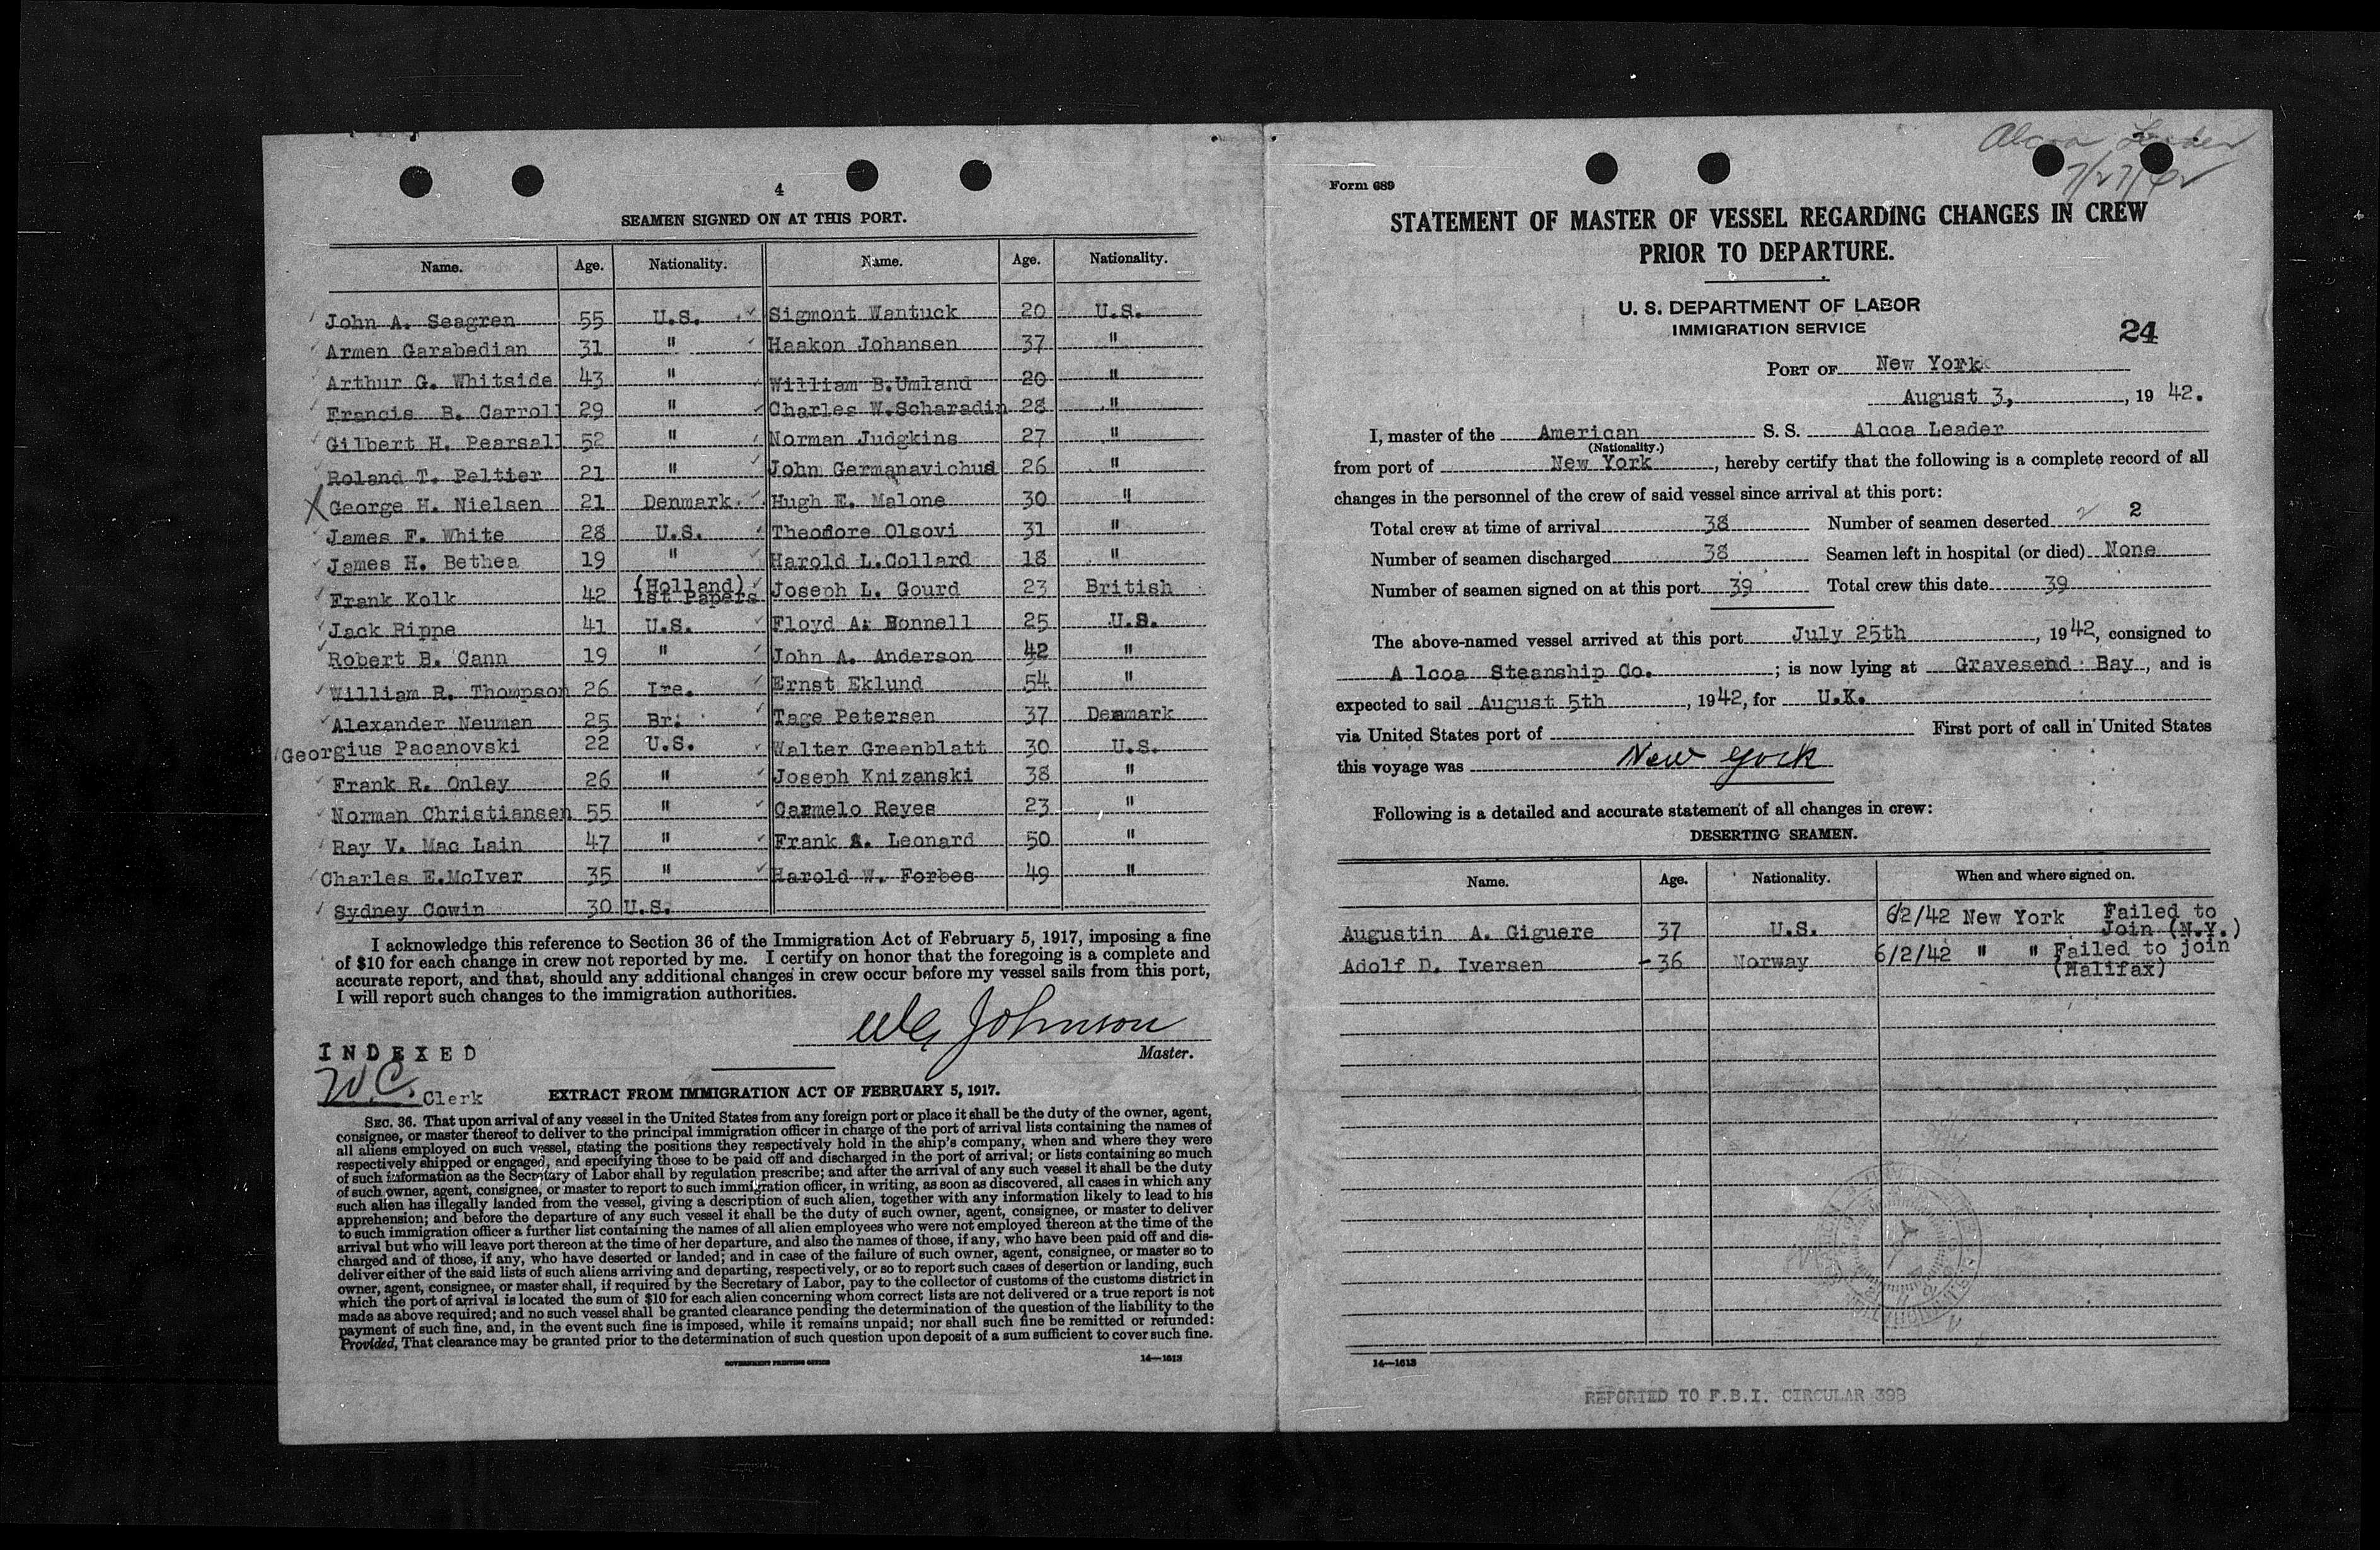 4
SEAMEN SIGNED ON AT THIS PORT.
Name. Age. Nationality. Name. Age. Nationality.
John A. Seagren 55 U.S. Sigmont Wantuck 20 U.S.
Armen Garabedian 31 " Haakon Johansen 37 "
Arthur G. Whitside 43 " William B.Umland 20 "
Francis B. Carroll 29 " Charles W.Scharadin 28 "
Gilbert H. Pearsall 52 " Norman Judgkins 27 "
Roland T. Peltier 21 " John Germanavichus 26 "
X George H. Nielsen 21 Denmark. Hugh E. Malone 30 "
James F. White 28 U.S. Theodore Olsovi 31 "
James H. Bethea 19 " Harold L.Collard 18 "
Frank Kolk 42 (Holland) 1st Papers Joseph L. Gourd 23 British
Jack Rippe 41 U.S. Floyd A. Bonnell 25 U.S.
Robert B. Cann 19 " John A. Anderson 42 "
William R. Thompson 26 Ire. Ernst Eklund 54 "
Alexander Neuman 25 Br. Tage Petersen 37 Denmark
Georgius Pacanovski 22 U.S. Walter Greenblatt 30 U.S.
Frank R. Onley 26 " Joseph Knizanski 38 "
Norman Christiansen 55 " Carmelo Reyes 23 "
Ray V. Mac Lain 47 " Frank A. Leonard 50 "
Charles E.McIver 35 " Harold W. Forbes 49 "
Sydney Cowin 30 U.S.
I acknowledge this reference to Section 36 of the Immigration Act of February 5, 1917, imposing a fine
of $10 for each change in crew not reported by me. I certify on honor that the foregoing is a complete and
accurate report, and that, should any additional changes in crew occur before my vessel sails from this port,
I will report such changes to the immigration authorities.
Johnson
Master.
INDEXED
W.C. Clerk
EXTRACT FROM IMMIGRATION ACT OF FEBRUARY 5, 1917.
SEC. 36. That upon arrival of any vessel in the United States from any foreign port or place it shall be the duty of the owner, agent,
consignee, or master thereof to deliver to the principal immigration officer in charge of the port of arrival lists containing the names of
all aliens employed on such vessel, stating the positions they respectively hold in the ship's company, when and where they were
respectively shipped or engaged, and specifying those to be paid off and discharged in the port of arrival; or lists containing so much
of such information as the Secretary of Labor shall by regulation prescribe; and after the arrival of any such vessel it shall be the duty
of such owner, agent, consignee, or master to report to such immigration officer, in writing, as soon as discovered, all cases in which any
such alien has illegally landed from the vessel, giving a description of such alien, together with any information likely to lead to his
apprehension; and before the departure of any such vessel it shall be the duty of such owner, agent, consignee, or master to deliver
to such immigration officer a further list containing the names of all alien employees who were not employed thereon at the time of the
arrival but who will leave port thereon at the time of her departure, and also the names of those, if any, who have been paid off and dis-
charged and of those, if any, who have deserted or landed; and in case of the failure of such owner, agent, consignee, or master so to
deliver either of the said lists of such aliens arriving and departing, respectively, or so to report such cases of desertion or landing, such
owner, agent, consignee, or master shall, if required by the Secretary of Labor, pay to the collector of customs of the customs district in
which the port of arrival is located the sum of $10 for each alien concerning whom correct lists are not delivered or a true report is not
made as above required; and no such vessel shall be granted clearance pending the determination of the question of the liability to the
payment of such fine, and, in the event such fine is imposed, while it remains unpaid; nor shall such fine be remitted or refunded:
Provided, That clearance may be granted prior to the determination of such question upon deposit of a sum sufficient to cover such fine.
GOVERNMENT PRINTING OFFICE 14—1613
Alcoa Leader
7/27/42
Form 689
STATEMENT OF MASTER OF VESSEL REGARDING CHANGES IN CREW
PRIOR TO DEPARTURE.
U. S. DEPARTMENT OF LABOR
IMMIGRATION SERVICE
24
PORT OF New York
August 3, , 19 42.
I, master of the American S. S. Alcoa Leader
(Nationality.)
from port of New York , hereby certify that the following is a complete record of all
changes in the personnel of the crew of said vessel since arrival at this port:
Total crew at time of arrival 38 Number of seamen deserted 2 2
Number of seamen discharged 38 Seamen left in hospital (or died) None
Number of seamen signed on at this port 39 Total crew this date 39
The above-named vessel arrived at this port July 25th , 1942, consigned to
A lcoa Steanship Co. ; is now lying at Gravesend Bay , and is
expected to sail August 5th , 1942, for U.K.
via United States port of First port of call in United States
this voyage was New York
Following is a detailed and accurate statement of all changes in crew:
DESERTING SEAMEN.
Name. Age. Nationality. When and where signed on.
Augustin A. Giguere 37 U.S. 6/2/42 New York Failed to Join (N.Y.)
Adolf D. Iversen -36 Norway 6/2/42 " " Failed to join (Halifax)
14—1613
REPORTED TO F.B.I. CIRCULAR 39B